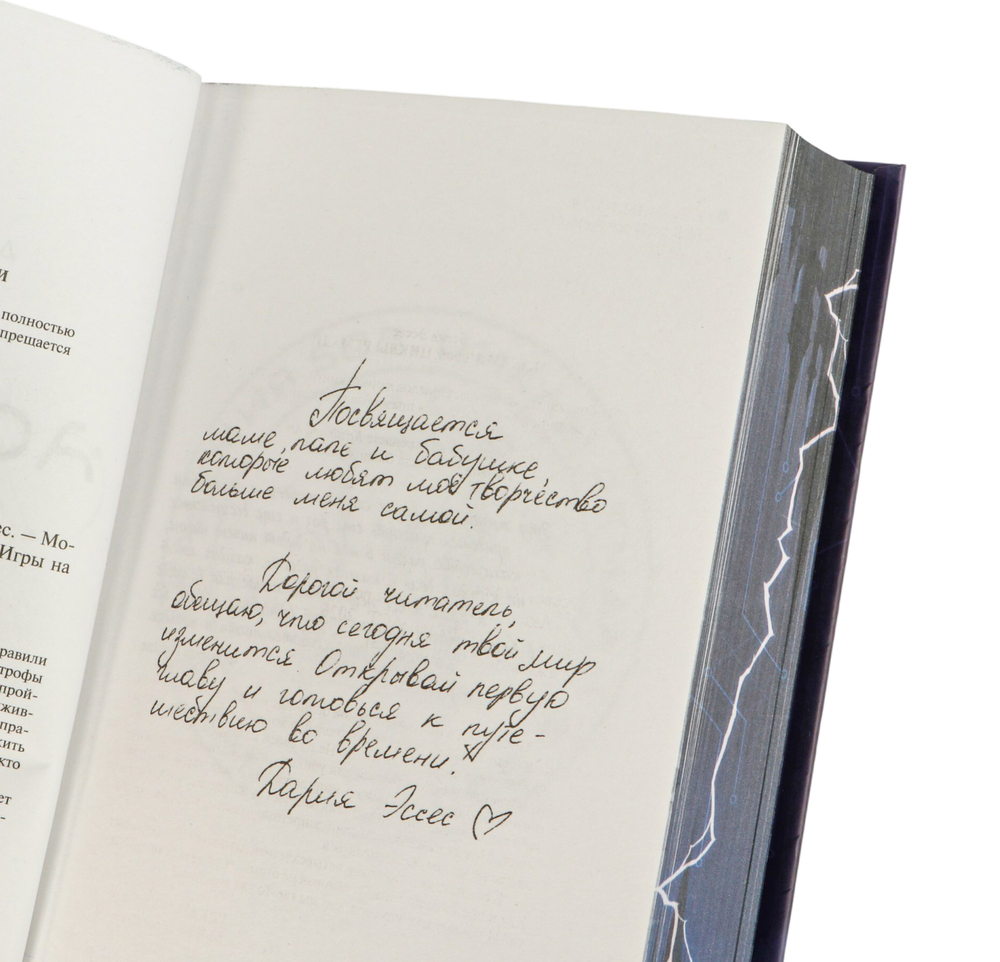 и
полностью
прещается
ес. — Мо-
Игры на
равили
трофы
прой-
жив-
пра-
жить
кто
ет
Посвящается
маме, папе и бабушке,
которые любят моё творчество
больше меня самой.
Дорогой читатель,
обещаю, что сегодня твой мир
изменится. Открывай первую
главу и готовься к путе-
шествию во времени!
Дария Эссес